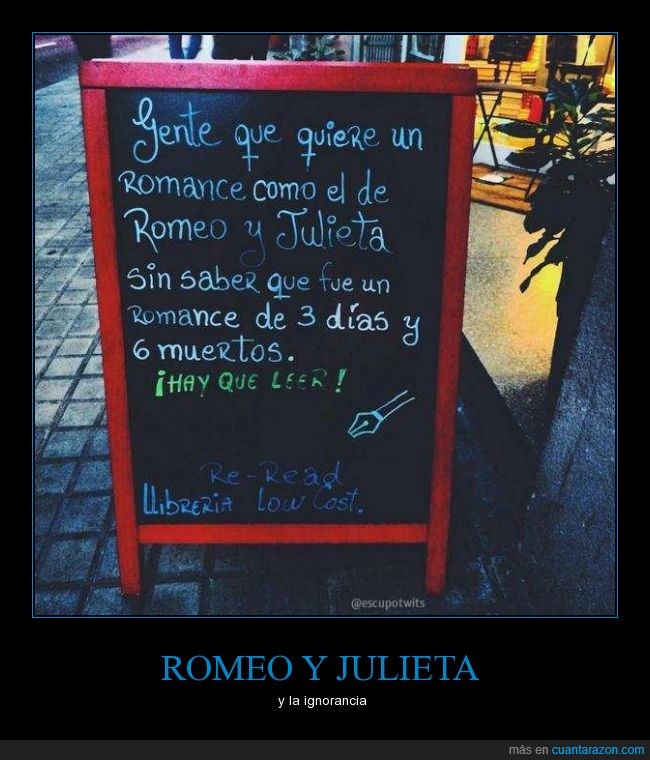 Gente que quiere un
romance como el de
Romeo y Julieta
sin saber que fue un
romance de 3 días y
6 muertos.
¡HAY QUE LEER!
Re-Read
Llibreria Low Cost.
@escupotwits
ROMEO Y JULIETA
y la ignorancia
más en cuantarazon.com